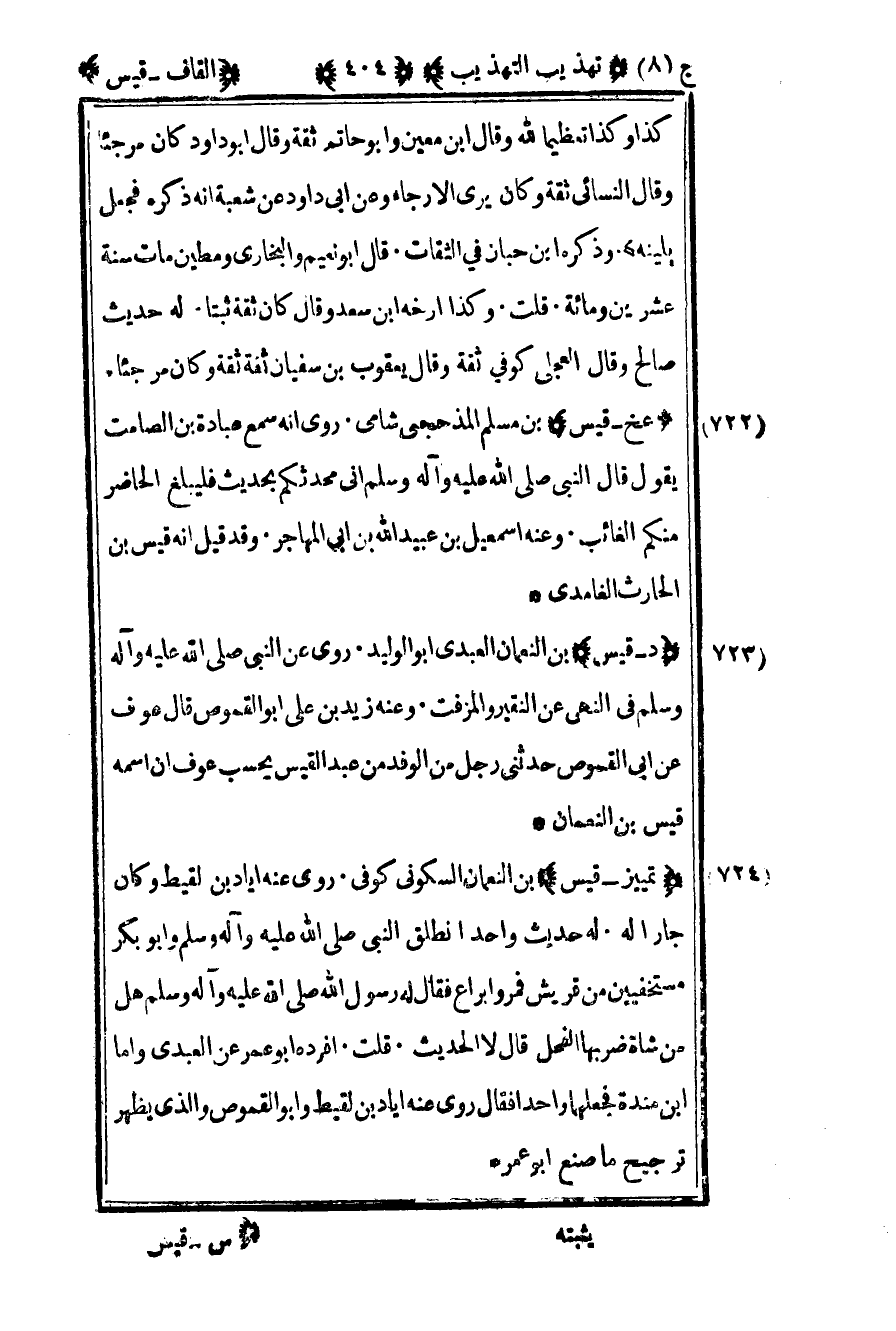 ج (٨) ﴿ تهذيب التهذيب ﴾ ﴿ ٤٠٤ ﴾ ﴿ القاف ـ قيس ﴾
كذا وكذا تعظيما لله وقال ابن معين وابوحاتم ثقة وقال ابوداود كان مرجئا
وقال النسائى ثقة وكان يرى الارجاء وعن ابى داود عن شعبة انه ذكره فجعل
يلينه . وذكره ابن حبان في الثقات . قال ابونعيم والبخارى ومطين مات سنة
عشرين ومائة . قلت . وكذا ارخه ابن سعد وقال كان ثقة ثبتا . له حديث
صالح وقال العجلى كوفي ثقة وقال يعقوب بن سفيان ثقة ثقة وكان مرجئا .
(٧٢٢) ﴿ عخ ـ قيس ﴾ بن مسلم المذحجى شامى . روى انه سمع عبادة بن الصامت
يقول قال النبى صلى الله عليه وآله وسلم انى محدثكم بحديث فليبلغ الحاضر
منكم الغائب . وعنه اسمعيل بن عبيدالله بن ابي المهاجر . وقد قيل انه قيس بن
الحارث الغامدى *
(٧٢٣) ﴿ د ـ قيس ﴾ بن النعمان العبدى ابوالوليد . روى عن النبى صلى الله عليه وآله
وسلم فى النهى عن النقير والمزفت . وعنه زيد بن على ابوالقموص قال عوف
عن ابى القموص حدثنى رجل من الوفد من عبدالقيس يحسب عوف ان اسمه
قيس بن النعمان *
(٧٢٤) ﴿ تمييز ـ قيس ﴾ بن النعمان السكونى كوفى . روى عنه اياد بن لقيط وكان
جارا له . له حديث واحد انطلق النبى صلى الله عليه وآله وسلم وابوبكر
مستخفيين من قريش فمروا براع فقال له رسول الله صلى الله عليه وآله وسلم هل
من شاة ضربها الفحل قال لا الحديث . قلت . افرده ابوعمر عن العبدى واما
ابن مندة فجعلهما واحدا فقال روى عنه اياد بن لقيط وابوالقموص والذى يظهر
ترجيح ما صنع ابوعمر *
يثبته ﴿ س ـ قيس